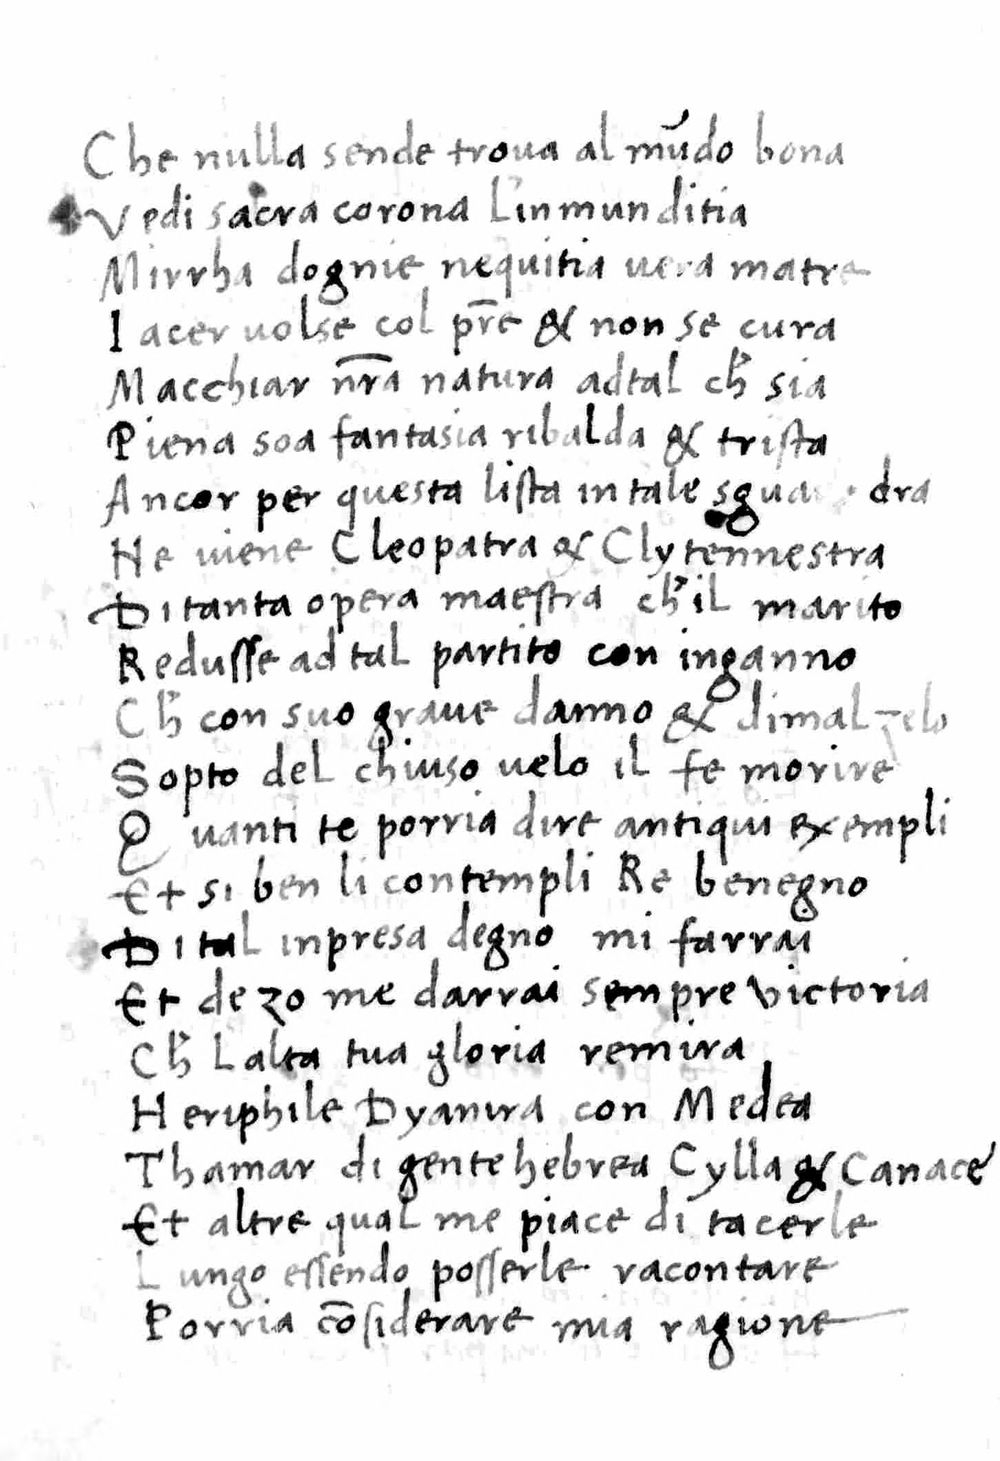 Che nulla sende troua al mūdo bona
Vedi sacra corona L'inmunditia
Mirrha dognie nequitia uera matre
Iacer uolse col pr̄e & non se cura
Macchiar nr̄a natura adtal ch̓ sia
Piena soa fantasia ribalda & trista
Ancor per questa lista in tale sgua dra
He uiene Cleopatra & Clytennestra
Di tanta opera maestra ch̓ il marito
Redusse ad tal partito con inganno
Ch̓ con suo graue danno & dimal zelo
Sopto del chiuso uelo il fe morire
Quanti te porria dire antiqui exempli
Et si ben li contempli Re benegno
Di tal inpresa degno mi farrai
Et de zo me darrai sempre victoria
Ch̓ Lalta tua gloria remira
Heriphile Dyanira con Medea
Thamar di gente hebrea Cylla & Canace
Et altre qual me piace di tacerle
Lungo essendo posserle racontare
Porria cōsiderare mia ragione